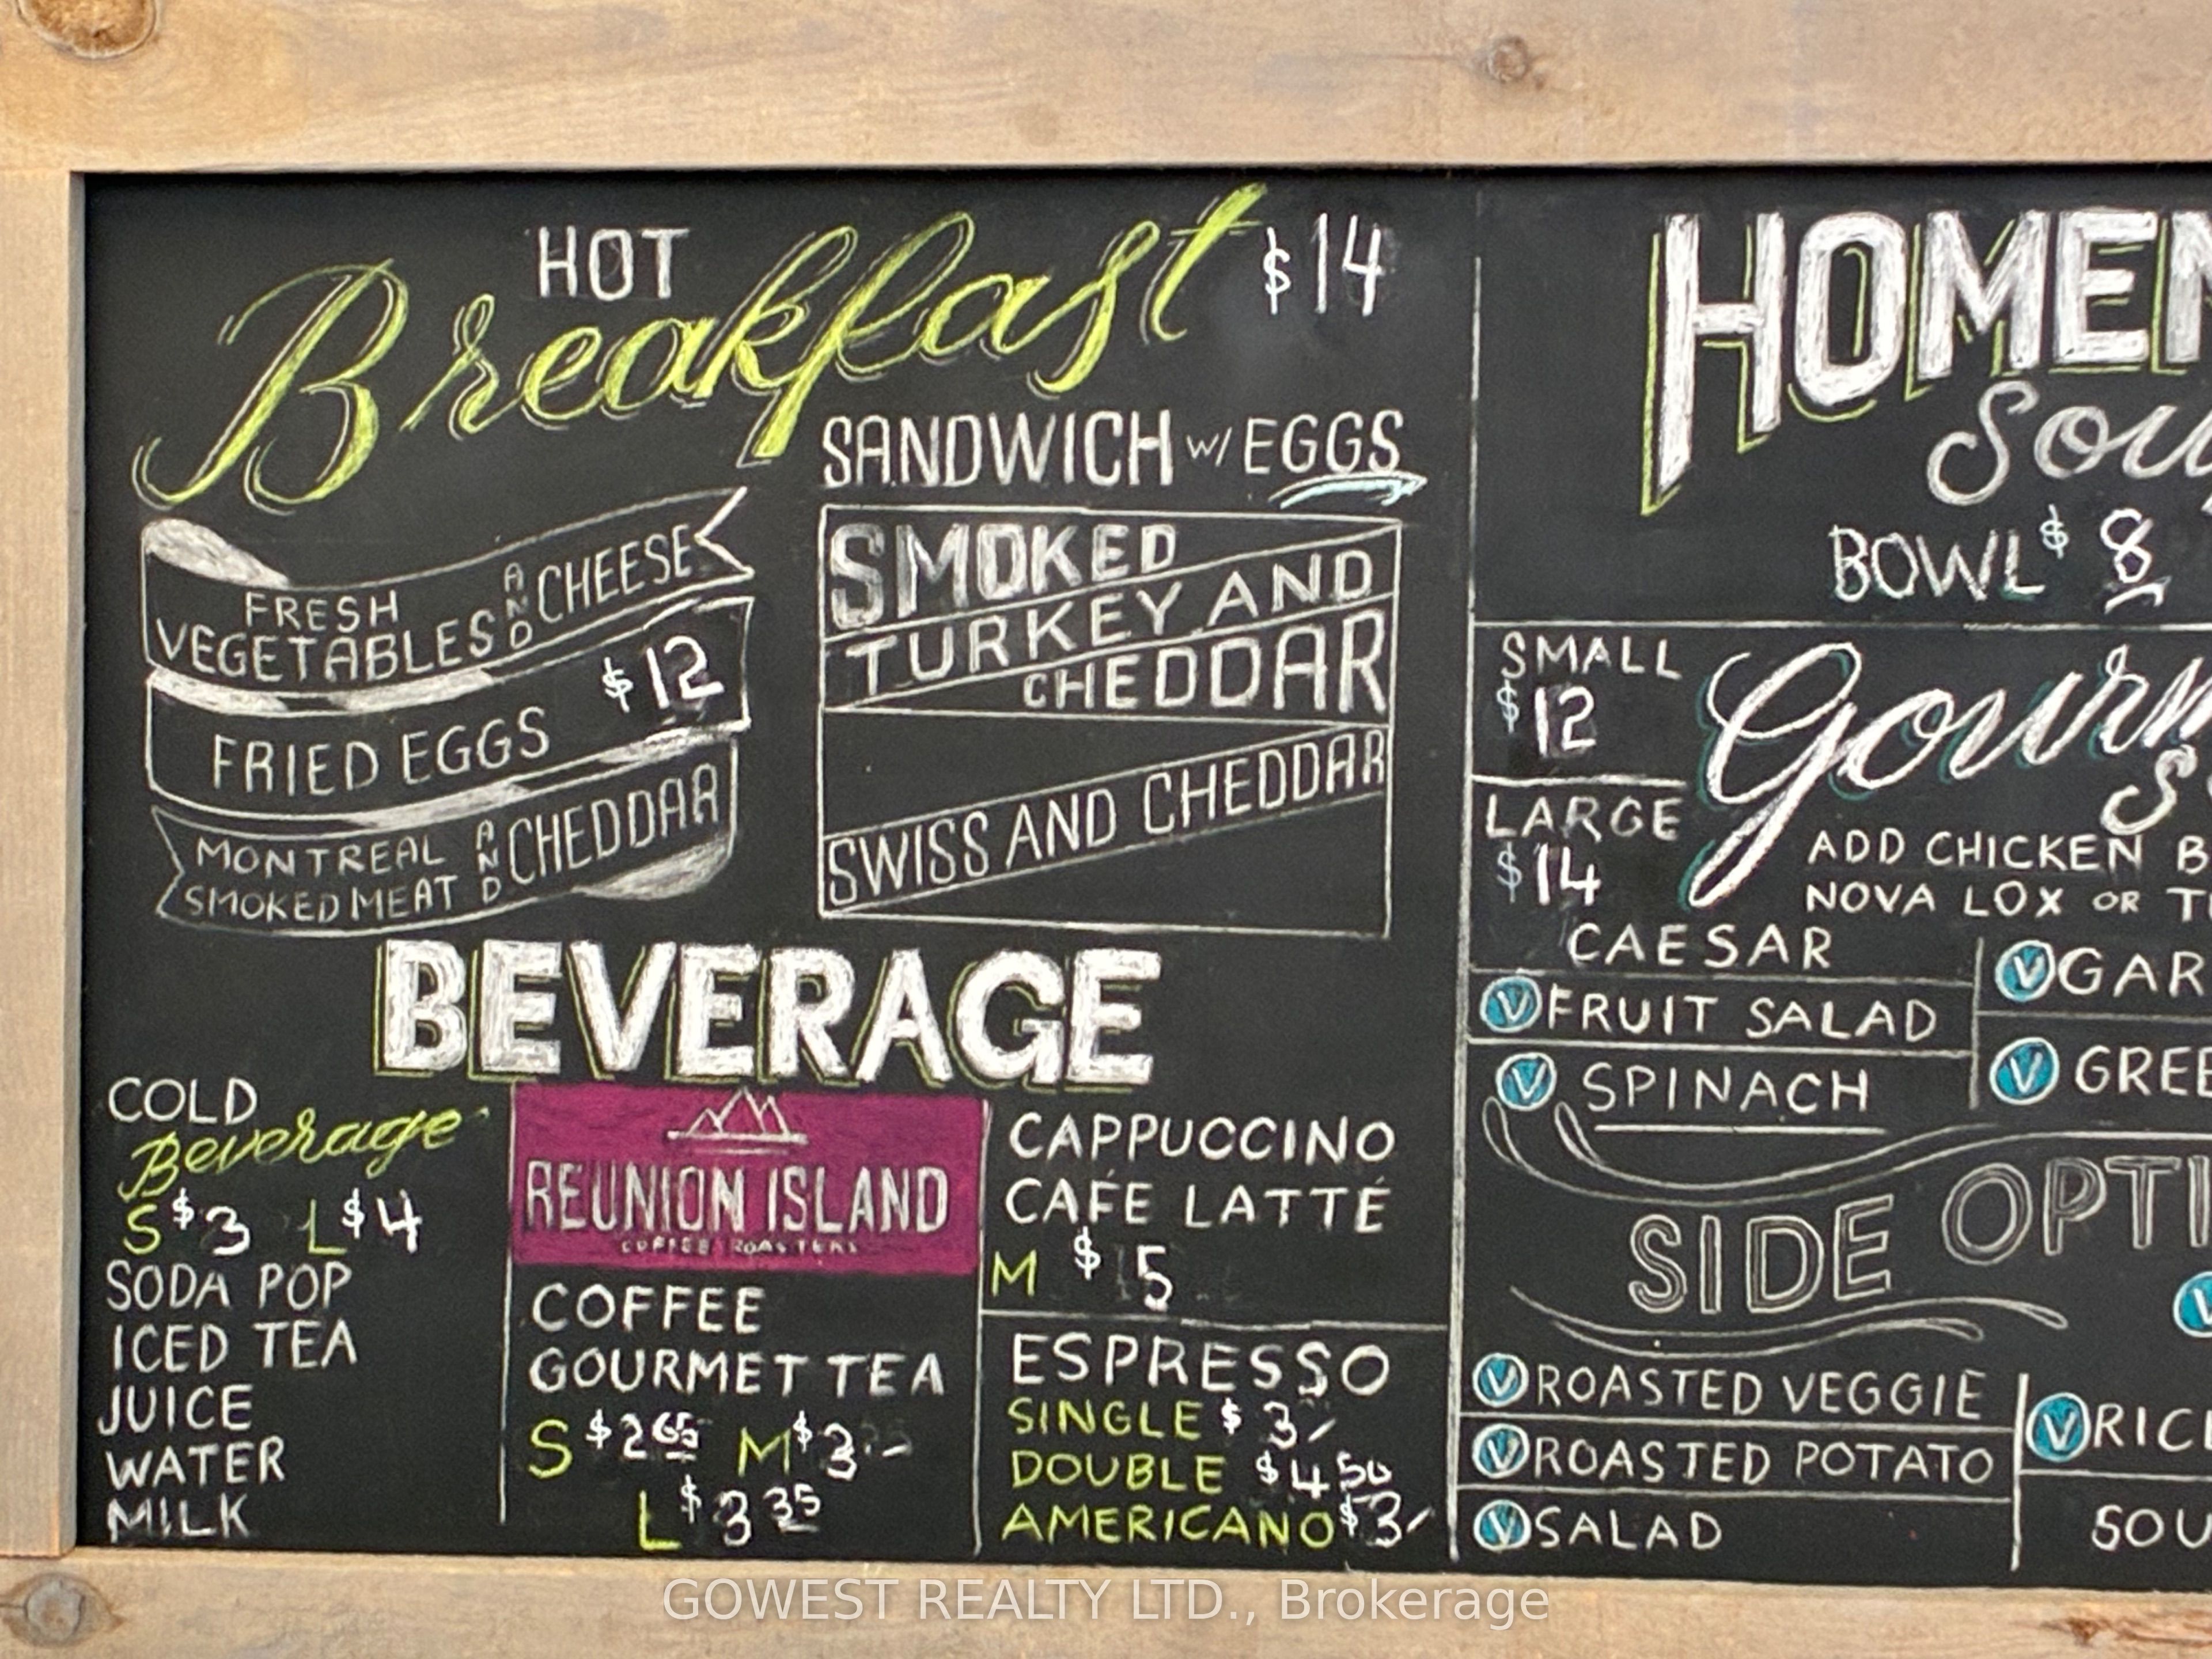 HOT
Breakfast $14
SANDWICH w/ EGGS
FRESH
VEGETABLES AND CHEESE
FRIED EGGS $12
MONTREAL
SMOKED MEAT AND CHEDDAR
SMOKED
TURKEY AND
CHEDDAR
SWISS AND CHEDDAR
BEVERAGE
COLD
Beverage
S $3 L $4
SODA POP
ICED TEA
JUICE
WATER
MILK
REUNION ISLAND
COFFEE ROASTERS
COFFEE
GOURMET TEA
S $2 65 M $3.-
L $3 35
CAPPUCCINO
CAFE LATTÉ
M $5
ESPRESSO
SINGLE $3/
DOUBLE $4 50
AMERICANO $3/
HOMEM
Sou
BOWL $8
SMALL
$12
LARGE
$14
Gourm
S
ADD CHICKEN B
NOVA LOX OR T
CAESAR
V FRUIT SALAD
V SPINACH
V GAR
V GREE
SIDE OPTI
V
V ROASTED VEGGIE
V ROASTED POTATO
V SALAD
V RIC
SOU
GOWEST REALTY LTD., Brokerage